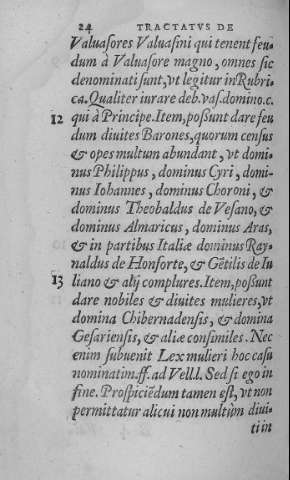 24 TRACTATVS DE
Valuasores Valuasini qui tenent feu-
dum à Valuasore magno, omnes sic
denominati sunt, vt legitur in Rubri-
ca. Qualiter iurare deb. vas. domino. c.
12 qui à Principe. Item, possunt dare feu
dum diuites Barones, quorum census
& opes multum abundant, vt domi-
nus Philippus, dominus Cyri, domi-
nus Iohannes, dominus Choroni, &
dominus Theobaldus de Vesano, &
dominus Almaricus, dominus Aras,
& in partibus Italiæ dominus Ray-
naldus de Honforte, & Gẽtilis de Iu
13 liano & alij complures. Item, possunt
dare nobiles & diuites mulieres, vt
domina Chibernadensis, & domina
Gesariensis, & aliæ consimiles. Nec
enim subuenit Lex mulieri hoc casu
nominatim. ff. ad Vell. l. Sed si ego in
fine. Prospiciẽdum tamen est, vt non
permittatur alicui non multùm diui-
ti in